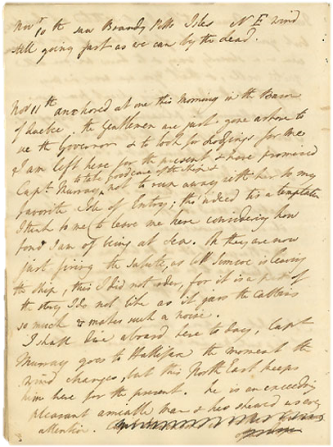 Novr 10th the sun Brandy Potts Isles N E wind
still going fast as we can by the Lead.
Nov 11th anchored at one this Morning in the Bason
of Quebec, the Gentlemen are just gone ashore to
see the Governor & to look for Lodgings for me
I am left here for the present & have promised
to take good care of the Ship
Capt. Murray not to run away with her to my
favorite Isle of Entry; this indeed tis a temptation
I think to me to leave me here considering how
fond I am of being at Sea. Oh they are now
just firing the Salute, as Coll Simcoe is leaving
the ship, this I did not order, for it is a part of
the story I do not like as it jars the Cabbins
so much & makes such a noise.
I shall dine aboard here to day, Capt
Murray goes to Hallifax the moment the
wind changes, but this North East keeps
him here for the present. he is an exceeding
pleasant amiable man & has shewed us every
attention.